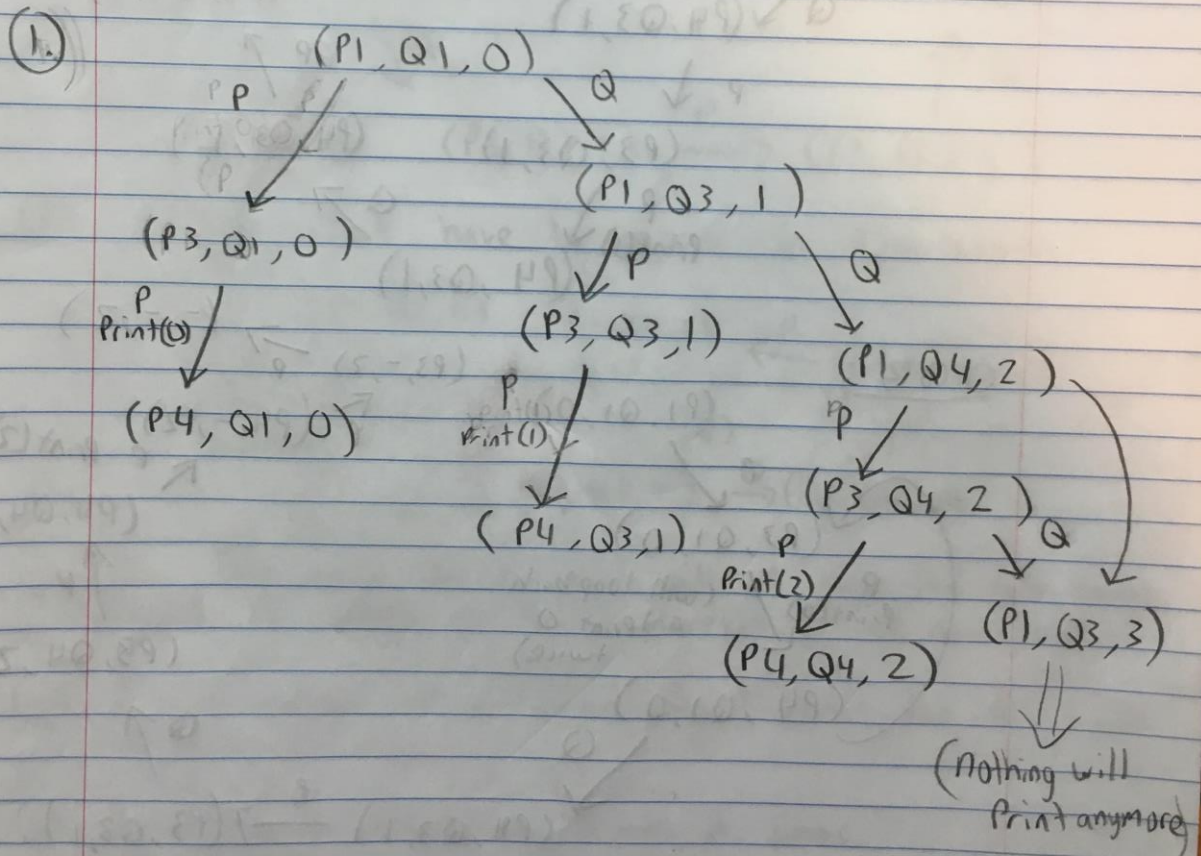 1.
(P1, Q1, 0)
P
Q
(P1, Q3, 1)
(P3, Q1, 0)
P
Q
P
Print(0)
(P3, Q3, 1)
(P1, Q4, 2)
P
Print(1)
P
(P4, Q1, 0)
(P3, Q4, 2)
(P4, Q3, 1)
P
Print(2)
Q
(P1, Q3, 3)
(P4, Q4, 2)
(Nothing will
Print anymore)